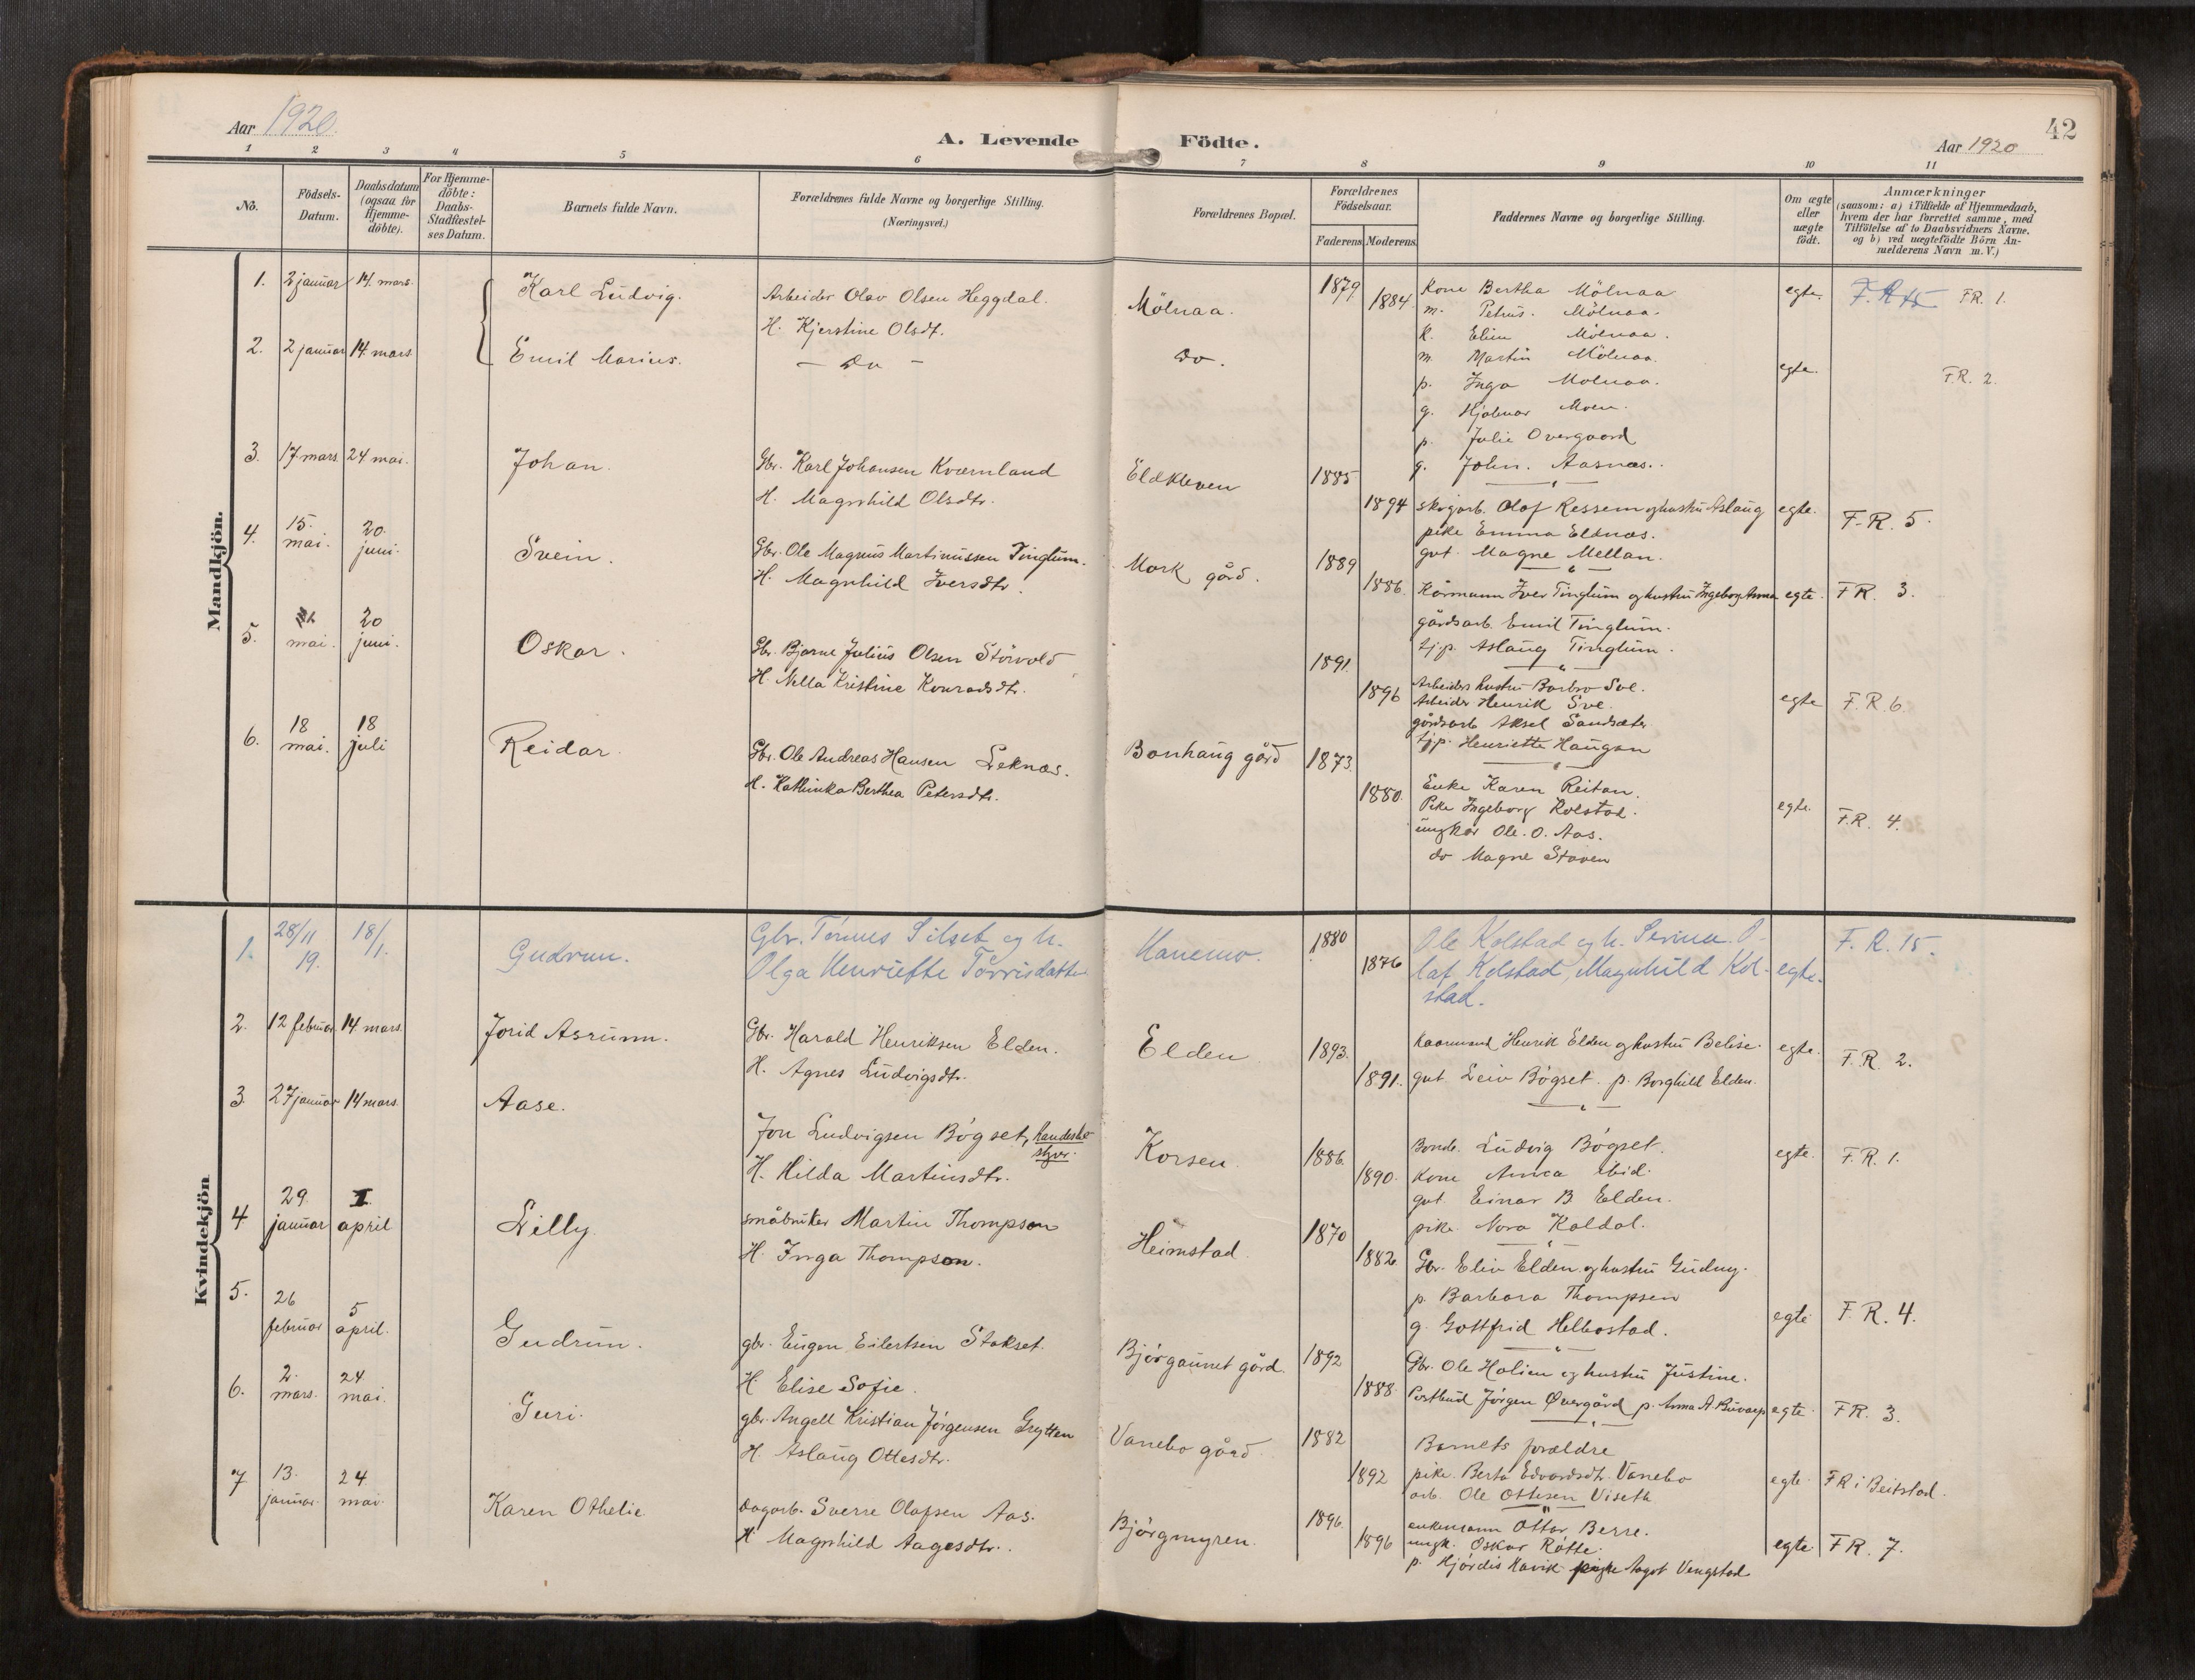 Aar 1920.
A. Levende Födte.
42
Aar 1920
1 2 3 4 5 6 7 8 9 10 11
No.
Födsels-
Datum.
Daabsdatum
(ogsaa for
Hjemme-
döbte).
For Hjemme-
döbte:
Daabs-
Stadfæstel-
ses Datum.
Barnets fulde Navn.
Forældrenes fulde Navne og borgerlige Stilling.
(Næringsvei.)
Forældrenes Bopæl.
Forældrenes
Födselsaar.
Faderens Moderens
Faddernes Navne og borgerlige Stilling.
Om ægte
eller
uægte
födt.
Anmærkninger
(saasom: a) i Tilfælde af Hjemmedaab,
hvem der har forrettet samme, med
Tilföielse af to Daabsvidners Navne.
og b) ved uægtefödte Börn An-
melderens Navn m. V.)
Mandkjön.
1. 2 januar 14. mars. Karl Ludvig.
Arbeider Olav Olsen Heggdal.
H. Kjerstine Olsdt.
Mölnaa.
1879
1884.
Kone Bertha Mölnaa
m. Petrus. Mölnaa.
k. Elin Mölnaa.
m. Martin Mölnaa.
p. Inga Mölnaa.
g. Hjalmar Moen.
p. Julie Overgaard
g. John. Aasnæs.
egte.
F. R 15 FR. 1.
2. 2 januar 14. mars Emil Marius.
— Do —
Do.
egte.
F.R. 2.
3. 17 mars. 24 mai. Johan.
Gbr. Karl Johansen Kværnland
H. Magnhild Olsdtr.
Eldkleven
1885
1894
skogarb. Olof Ressem og hustru Aslaug
pike Emma Eldnæs.
gut. Magne Mellan.
egte.
F.R. 5.
4. 15. mai. 20. juni. Svein.
Gbr. Ole Magnus Martinussen Tinglum.
H. Magnhild Iversdtr.
Mork gård.
1889
1886.
Kårmann Iver Tinglum og hustru Ingeborg Anna
gårdsarb. Emil Tinglum.
tj.p. Aslaug Tinglum.
egte.
FR. 3.
5. mai. 20 juni. Oskar.
Gbr. Bjarne Julius Olsen Störvold
H. Nella Kristine Konradsdt.
1891.
1896
Arbeiders hustru Barbro Sve.
Arbeider Henrik Sve.
gårdsarb. Aksel Sandsæter
tjp. Henriette Haugan
egte
F.R. 6.
6. 18 mai. 18 juli Reidar.
Gbr. Ole Andreas Hansen Leknæs.
H. Kathinka Berthea Petersdtr.
Bonhaug gård
1873.
1880.
Enke Karen Reitan.
Pike Ingeborg Kolstad.
ungkar Ole. O. Aas.
do Magne Staven
egte.
F.R. 4.
Kvindekjön
1. 28/11 19. 18/1. Gudrun.
Gbr. Tönnes Silset og h.
Olga Henriette Törrisdatter
Hanemo.
1880
1876
Ole Kolstad og h. Serina. O-
laf Kolstad, Magnhild Kol-
stad.
egte.
F. R. 15.
2. 12 februar. 14 mars. Jorid Asrunn.
Gbr. Harald Henriksen Elden.
H. Agnes Ludvigsdtr.
Elden
1893.
1891.
Kaarmand Henrik Elden og hustru Belise.
gut Leiv Bögset. p. Borghild Elden.
egte.
F.R. 2.
3. 27 januar 14 mars. Aase.
Jon Ludvigsen Bögset, handelsbestyr.
H. Hilda Martinsdtr.
Korsen.
1886.
1890.
Bonde. Ludvig Bögset.
Kone Anna ibid.
gut. Einar B Elden.
pike. Nora Kaldal.
egte.
F.R. 1.
4 29. januar 1. april Lilly.
småbruker Martin Thompson
H. Inga Thompson.
Heimstad.
1870
1882.
Gbr. Eliv Elden og hustru Gudny.
p. Barbara Thompsen
g. Gottfrid Helbostad.
egte
F.R. 4.
5. 26 februar 5 april. Gudrun.
gbr. Eugen Eilertsen Stokset.
H. Elise Sofie.
Björgaunet gård.
1892
1888.
Gbr. Ole Holien og hustru Justine.
Postbud Jörgen Øvergård p. Anna A. Buvarp
egte.
FR. 3.
6. 2. mars. 24 mai. Guri.
gbr. Angell Kristian Jörgensen Grytten
H. Aslaug Ottesdtr.
Vanebo gård.
1882
1892
Barnets forældre
pike. Berta Edvardsdt. Vanebo
arb. Ole Ottesen Viseth
egte.
FR i Beitstad.
7 13. januar. 24. mai. Karen Othelie
dagarb. Sverre Olafsen Aas.
H Magnhild Aagesdtr.
Björgmyren.
1896.
1896
enkemann Ottar Berre.
ungk. Oskar Råtte.
p. Hjördis Havik pike Aagot Vengstad
egte
FR. 7.